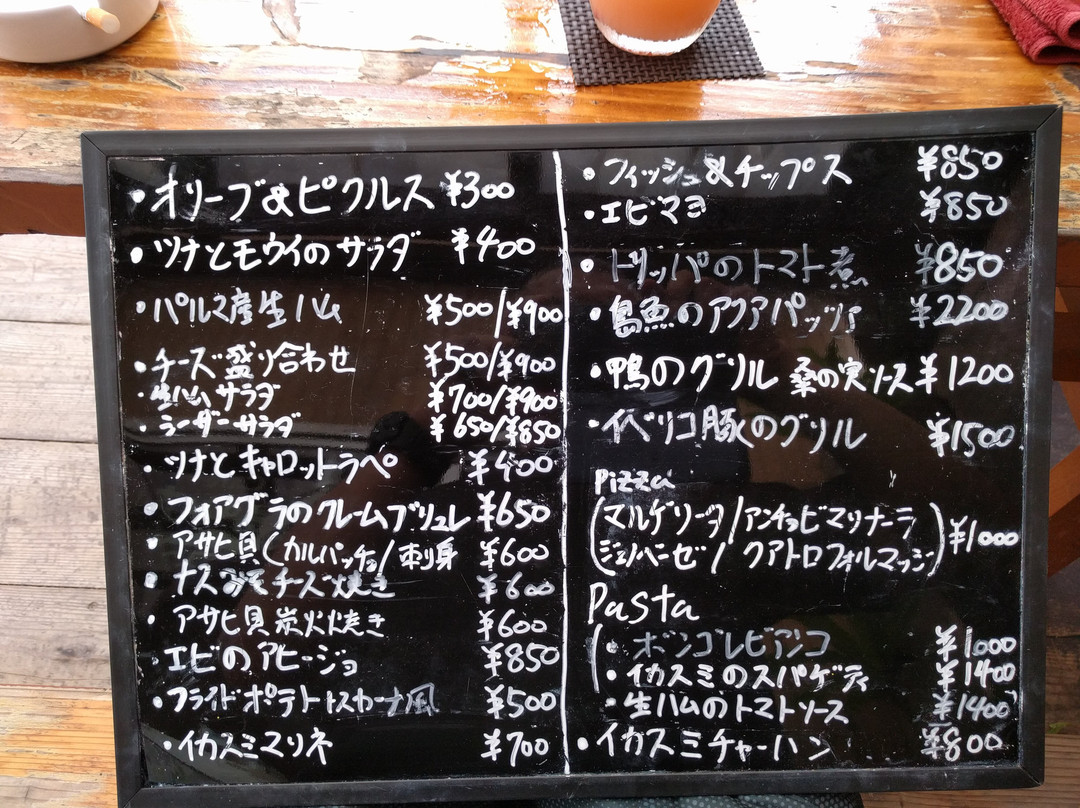 ・オリーブ&ピクルス ¥300
・ツナとモウイのサラダ ¥400
・パルマ産生ハム ¥500/¥900
・チーズ盛り合わせ ¥500/¥900
・生ハムサラダ ¥700/¥900
・ラーダーサラダ ¥650/¥850
・ツナとキャロットラペ ¥400
・フォアグラのクレームブリュレ ¥650
・アサヒ貝(カルパッチョ/刺身 ¥600
・ナスみそチーズ焼き ¥600
・アサヒ貝炭火焼き ¥600
エビのアヒージョ ¥850
・フライドポテトトスカーナ風 ¥500
・イカスミマリネ ¥700
・フィッシュ&チップス ¥850
・エビマヨ ¥850
・トリッパのトマト煮 ¥850
・島魚のアクアパッツァ ¥2200
・鴨のグリル 桑の実ソース ¥1200
・イベリコ豚のグリル ¥1500
Pizza
(マルゲリータ/アンチョビマリナーラ
ジェノベーゼ/クアトロフォルマッジ) ¥1000
Pasta
・ボンゴレビアンコ ¥1000
・イカスミのスパゲティ ¥1400
・生ハムのトマトソース ¥1400
・イカスミチャーハン ¥800